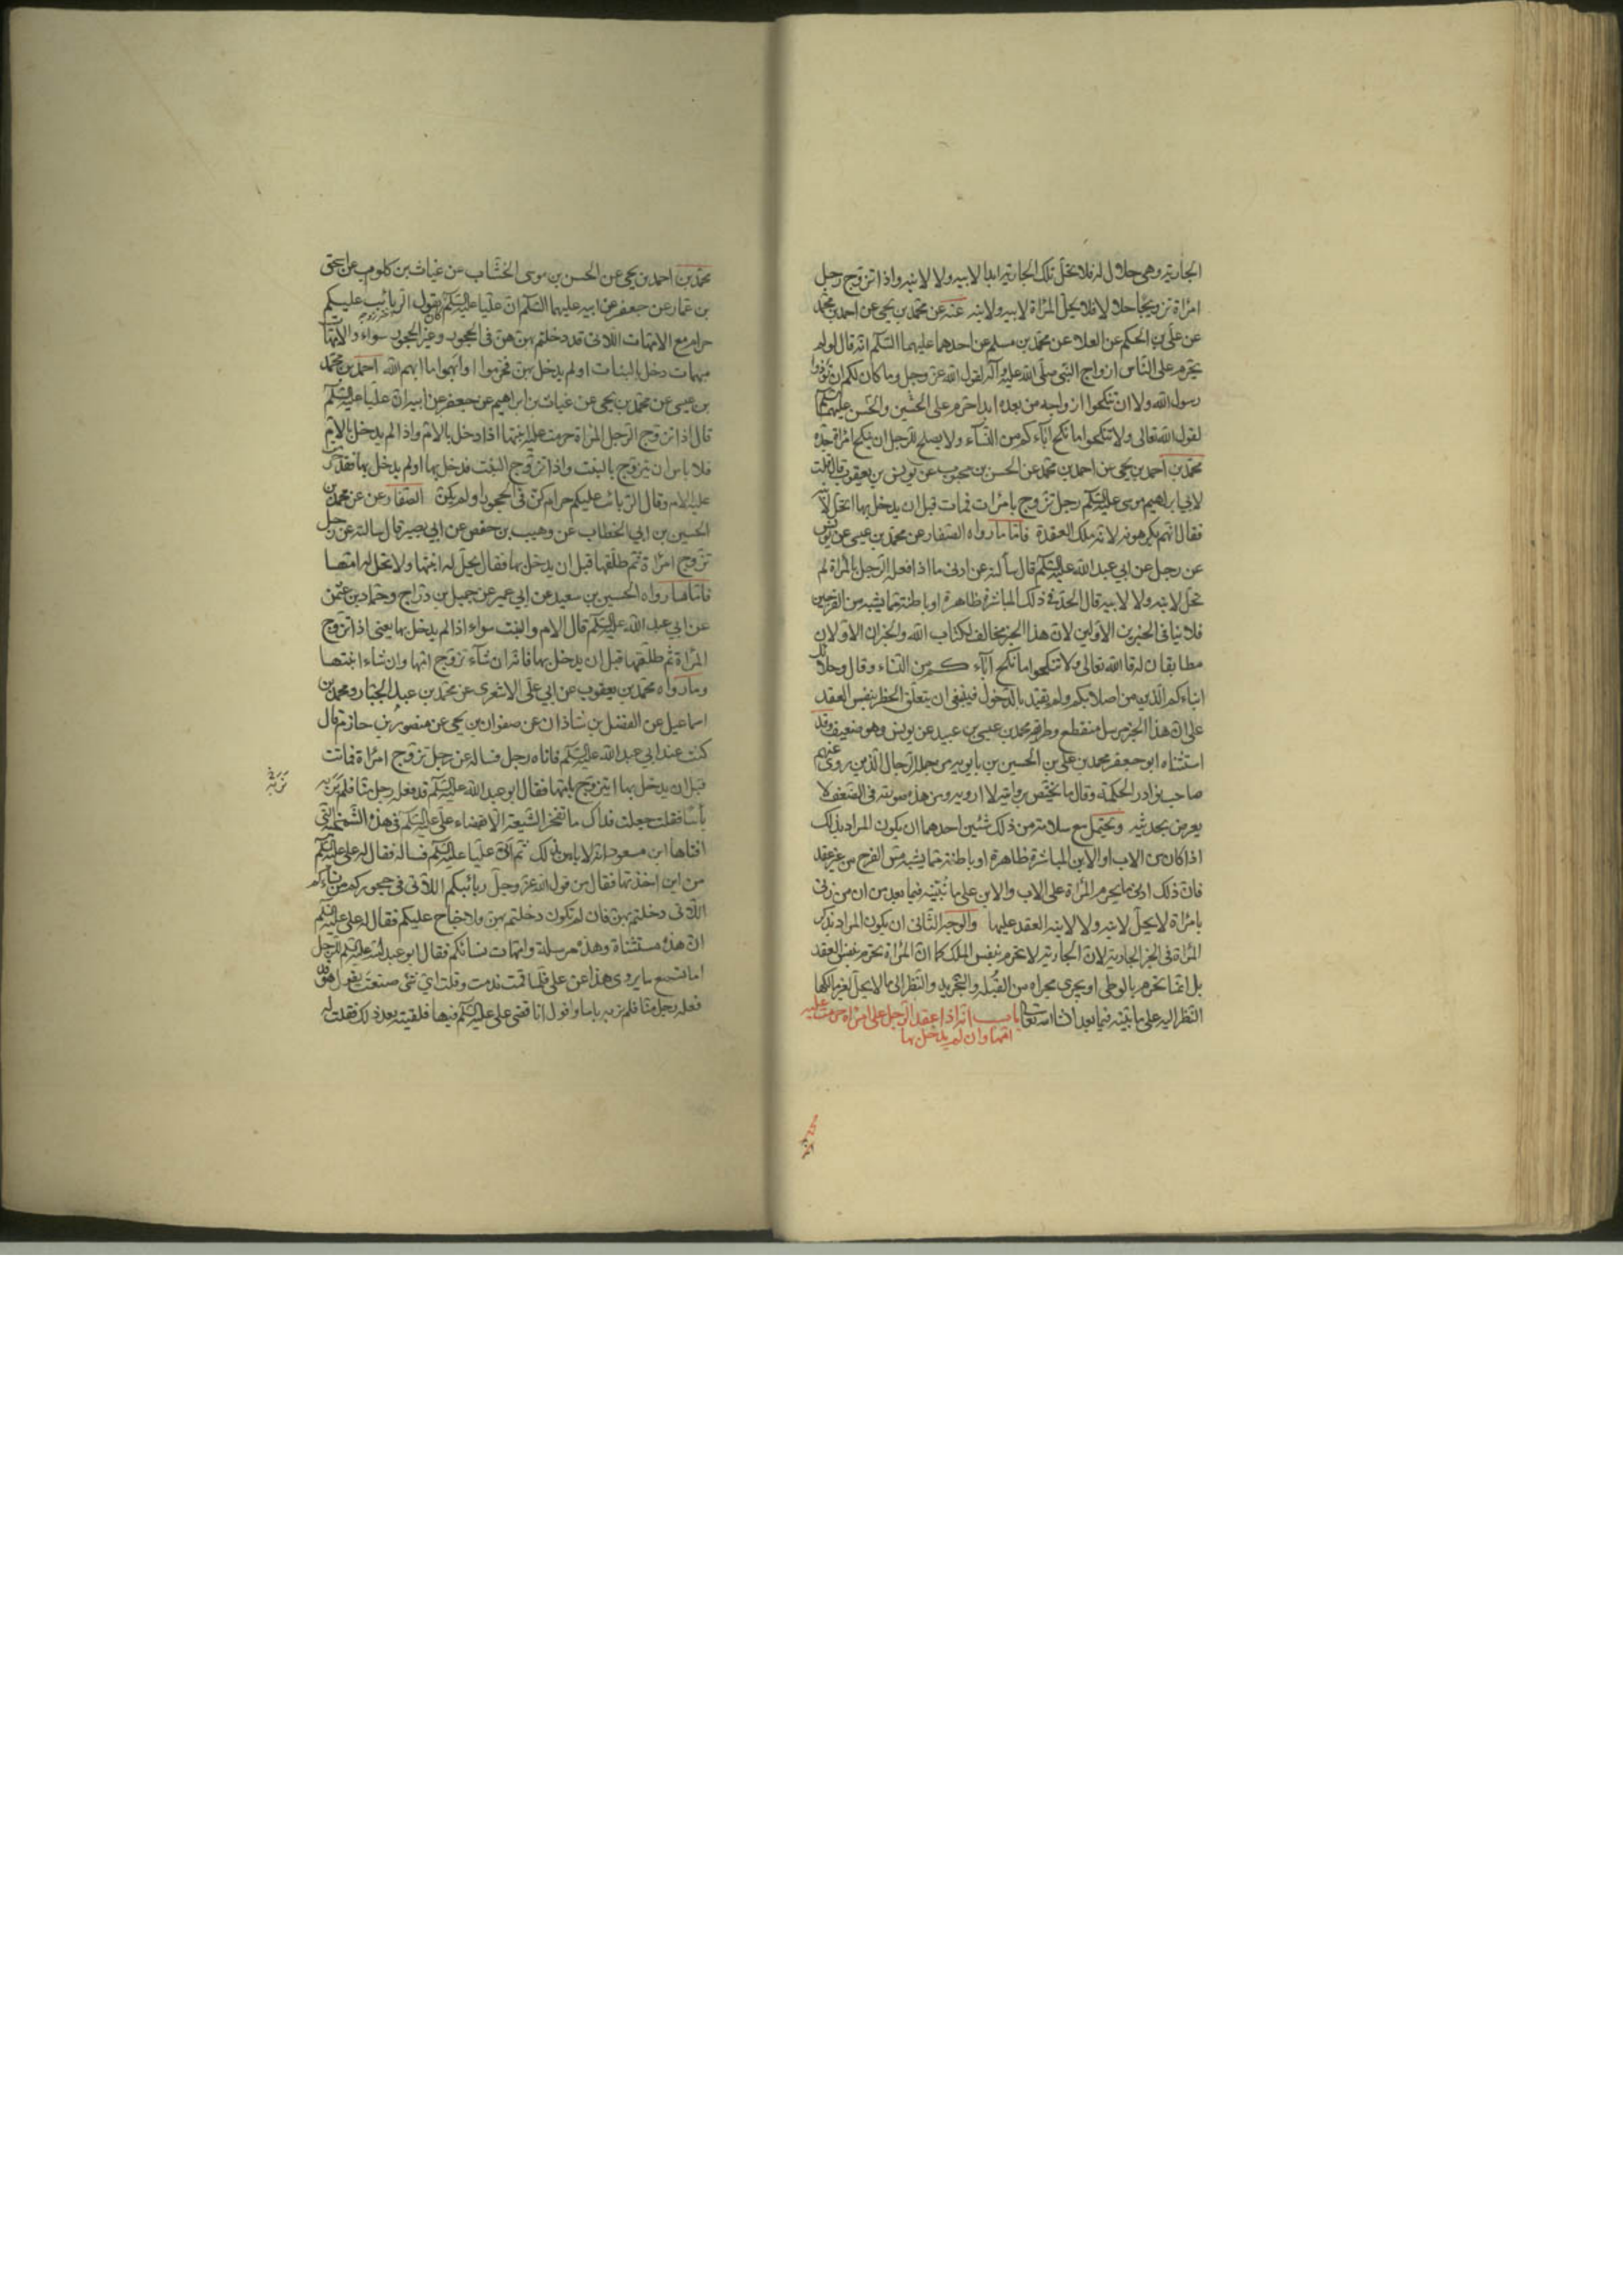 الجارية وهي حلال له فلا تحل تلك الجارية ابدا لابيه ولا لابنه واذا تزوج رجل
امرأة تزويجا حلالا فلا تحل المرأة لابيه ولابنه عنه عن محمد بن يحيى عن احمد بن محمد
عن علي بن الحكم عن العلاء عن محمد بن مسلم عن احدهما عليهما السلم انه قال لو لم
يحرم على الناس ازواج النبي صلى الله عليه وآله لقول الله عز وجل وما كان لكم ان تؤذوا
رسول الله ولا ان تنكحوا ازواجه من بعده ابدا حرم على الحسن والحسين عليهما السلم
لقول الله تعالى ولا تنكحوا ما نكح آباؤكم من النسآء ولا يصلح للرجل ان ينكح امرأة جده
محمد بن احمد بن يحيى عن احمد بن محمد عن الحسن بن محبوب عن يونس بن يعقوب قال قلت
لابي ابراهيم موسى عليه السلم رجل تزوج بامرأت فمات قبل ان يدخل بها اتحل لابنه
فقال انهم يكرهونه لانه ملك العقدة فاما ما رواه الصفار عن محمد بن عيسى عن يونس
عن رجل عن ابي عبد الله عليه السلم قال سألته عن ادنى ما اذا فعله الرجل بالمرأة لم
تحل لابنه ولا لابيه قال الحد في ذلك المباشرة ظاهرة او باطنة مما يشبه مس الفرجين
فلا ينافي الخبرين الاولين لان هذا الخبر مخالف لكتاب الله والخبران الاولان
مطابقان له قال الله تعالى ولا تنكحوا ما نكح آباء كم من النساء وقال وحلائل
ابناءكم الذين من اصلابكم ولم يقيد بالدخول فينبغي ان يتعلق الحظر بنفس العقد
على ان هذا الخبر مرسل منقطع وطريقه محمد بن عيسى بن عبيد عن يونس وهو ضعيف وقد
استثناه ابو جعفر محمد بن علي بن الحسين بن بابويه من جملة الرجال الذين روى عنهم
صاحب نوادر الحكمة وقال ما يختص بروايته لا ارويه ومن هذه صورته في الضعف لا
يعرض بحديثه ويحتمل مع سلامته من ذلك شئين احدهما ان يكون المراد بذلك
اذا كان من الاب او الابن المباشرة ظاهرة او باطنة مما يشبه مس الفرج من غير عقد
فان ذلك ادنى ما يحرم المرأة على الاب والابن على ما نبينه فيما بعد من ان من زنى
بامرأة لا يحل لابيه ولا لابنه العقد عليها والوجه الثاني ان يكون المراد بذكر
المرأة في الخبر الجارية لان الجارية لا تحرم بنفس الملك كما ان المرأة تحرم بنفس العقد
بل انما تحرم بالوطي او يجري مجراه من القبلة والتجريد والنظر الى ما لا يحل لغير مالكها
النظر اليه على ما بينه فيما بعد ان شاء الله تعالى باب انه اذا عقد الرجل على امرأة حرمت عليه
امها وان لم يدخل بها
محمد بن احمد بن يحيى عن الحسن بن موسى الخشاب عن غياث بن كلوب عن اسحق
بن عمار عن جعفر عن ابيه عليهما السلم ان عليا عليه السلم كان يقول الربائب عليكم
حرام مع الامهات اللاتي قد دخلتم بهن هن في الحجور وغير الحجور سواء والامهات
مبهمات دخل بالبنات او لم يدخل بهن فحرموا وابهموا ما ابهم الله احمد بن محمد
بن عيسى عن محمد بن يحيى عن غياث بن ابراهيم عن جعفر عن ابيه ان عليا عليه السلم
قال اذا تزوج الرجل المرأة حرمت عليه ابنتها اذا دخل بالام واذا لم يدخل بالام
فلا باس ان يتزوج بالبنت واذا تزوج البنت فدخل بها او لم يدخل بها فقد حرمت
عليه الام وقال الربائب عليكم حرام كن في الحجور او لم يكن الصفار عن محمد بن
الحسين بن ابي الخطاب عن وهيب بن حفص عن ابي بصير قال سالته عن رجل
تزوج امرأة ثم طلقها قبل ان يدخل بها فقال يحل له ابنتها ولا تحل له امها
فاما ما رواه الحسين بن سعيد عن ابي عمير عن جميل بن دراج وحماد بن عثمن
عن ابي عبد الله عليه السلم قال الام والبنت سواء اذا لم يدخل بها يعني اذا تزوج
المرأة ثم طلقها قبل ان يدخل بها فانه ان شآء تزوج امها وان شاء ابنتها
وما رواه محمد بن يعقوب عن ابي علي الاشعري عن محمد بن عبد الجبار ومحمد بن
اسماعيل عن الفضل بن شاذان عن صفوان بن يحيى عن منصور بن حازم قال
كنت عند ابي عبد الله عليه السلم فاتاه رجل فساله عن رجل تزوج امرأة فماتت
قبل ان يدخل بها ايتزوج بامها فقال ابو عبد الله عليه السلم قد فعله رجل منا فلم نر به
بأسا فقلت جعلت فداك ما تفخر الشيعة الا بقضاء علي عليه السلم في هذه الشمخية التي
افتاها ابن مسعود انه لا باس بذلك ثم اتى عليا عليه السلم فساله فقال له علي عليه السلم
من اين اخذتها فقال من قول الله عز وجل ربائبكم اللاتي في حجوركم من نساءكم
اللاتي دخلتم بهن فان لم تكونوا دخلتم بهن فلا جناح عليكم فقال له علي عليه السلم
ان هذه مستثناة وهذه مرسلة وامهات نسائكم فقال ابو عبد الله عليه السلم للرجل
اما تسمع ما يروى هذا عن علي فلما قمت ندمت وقلت اي شئ صنعت يقول هو
فعله رجل منا فلم نر به باسا واقول انا قضى علي عليه السلم فيها فلقيته بعد ذلك فقلت له